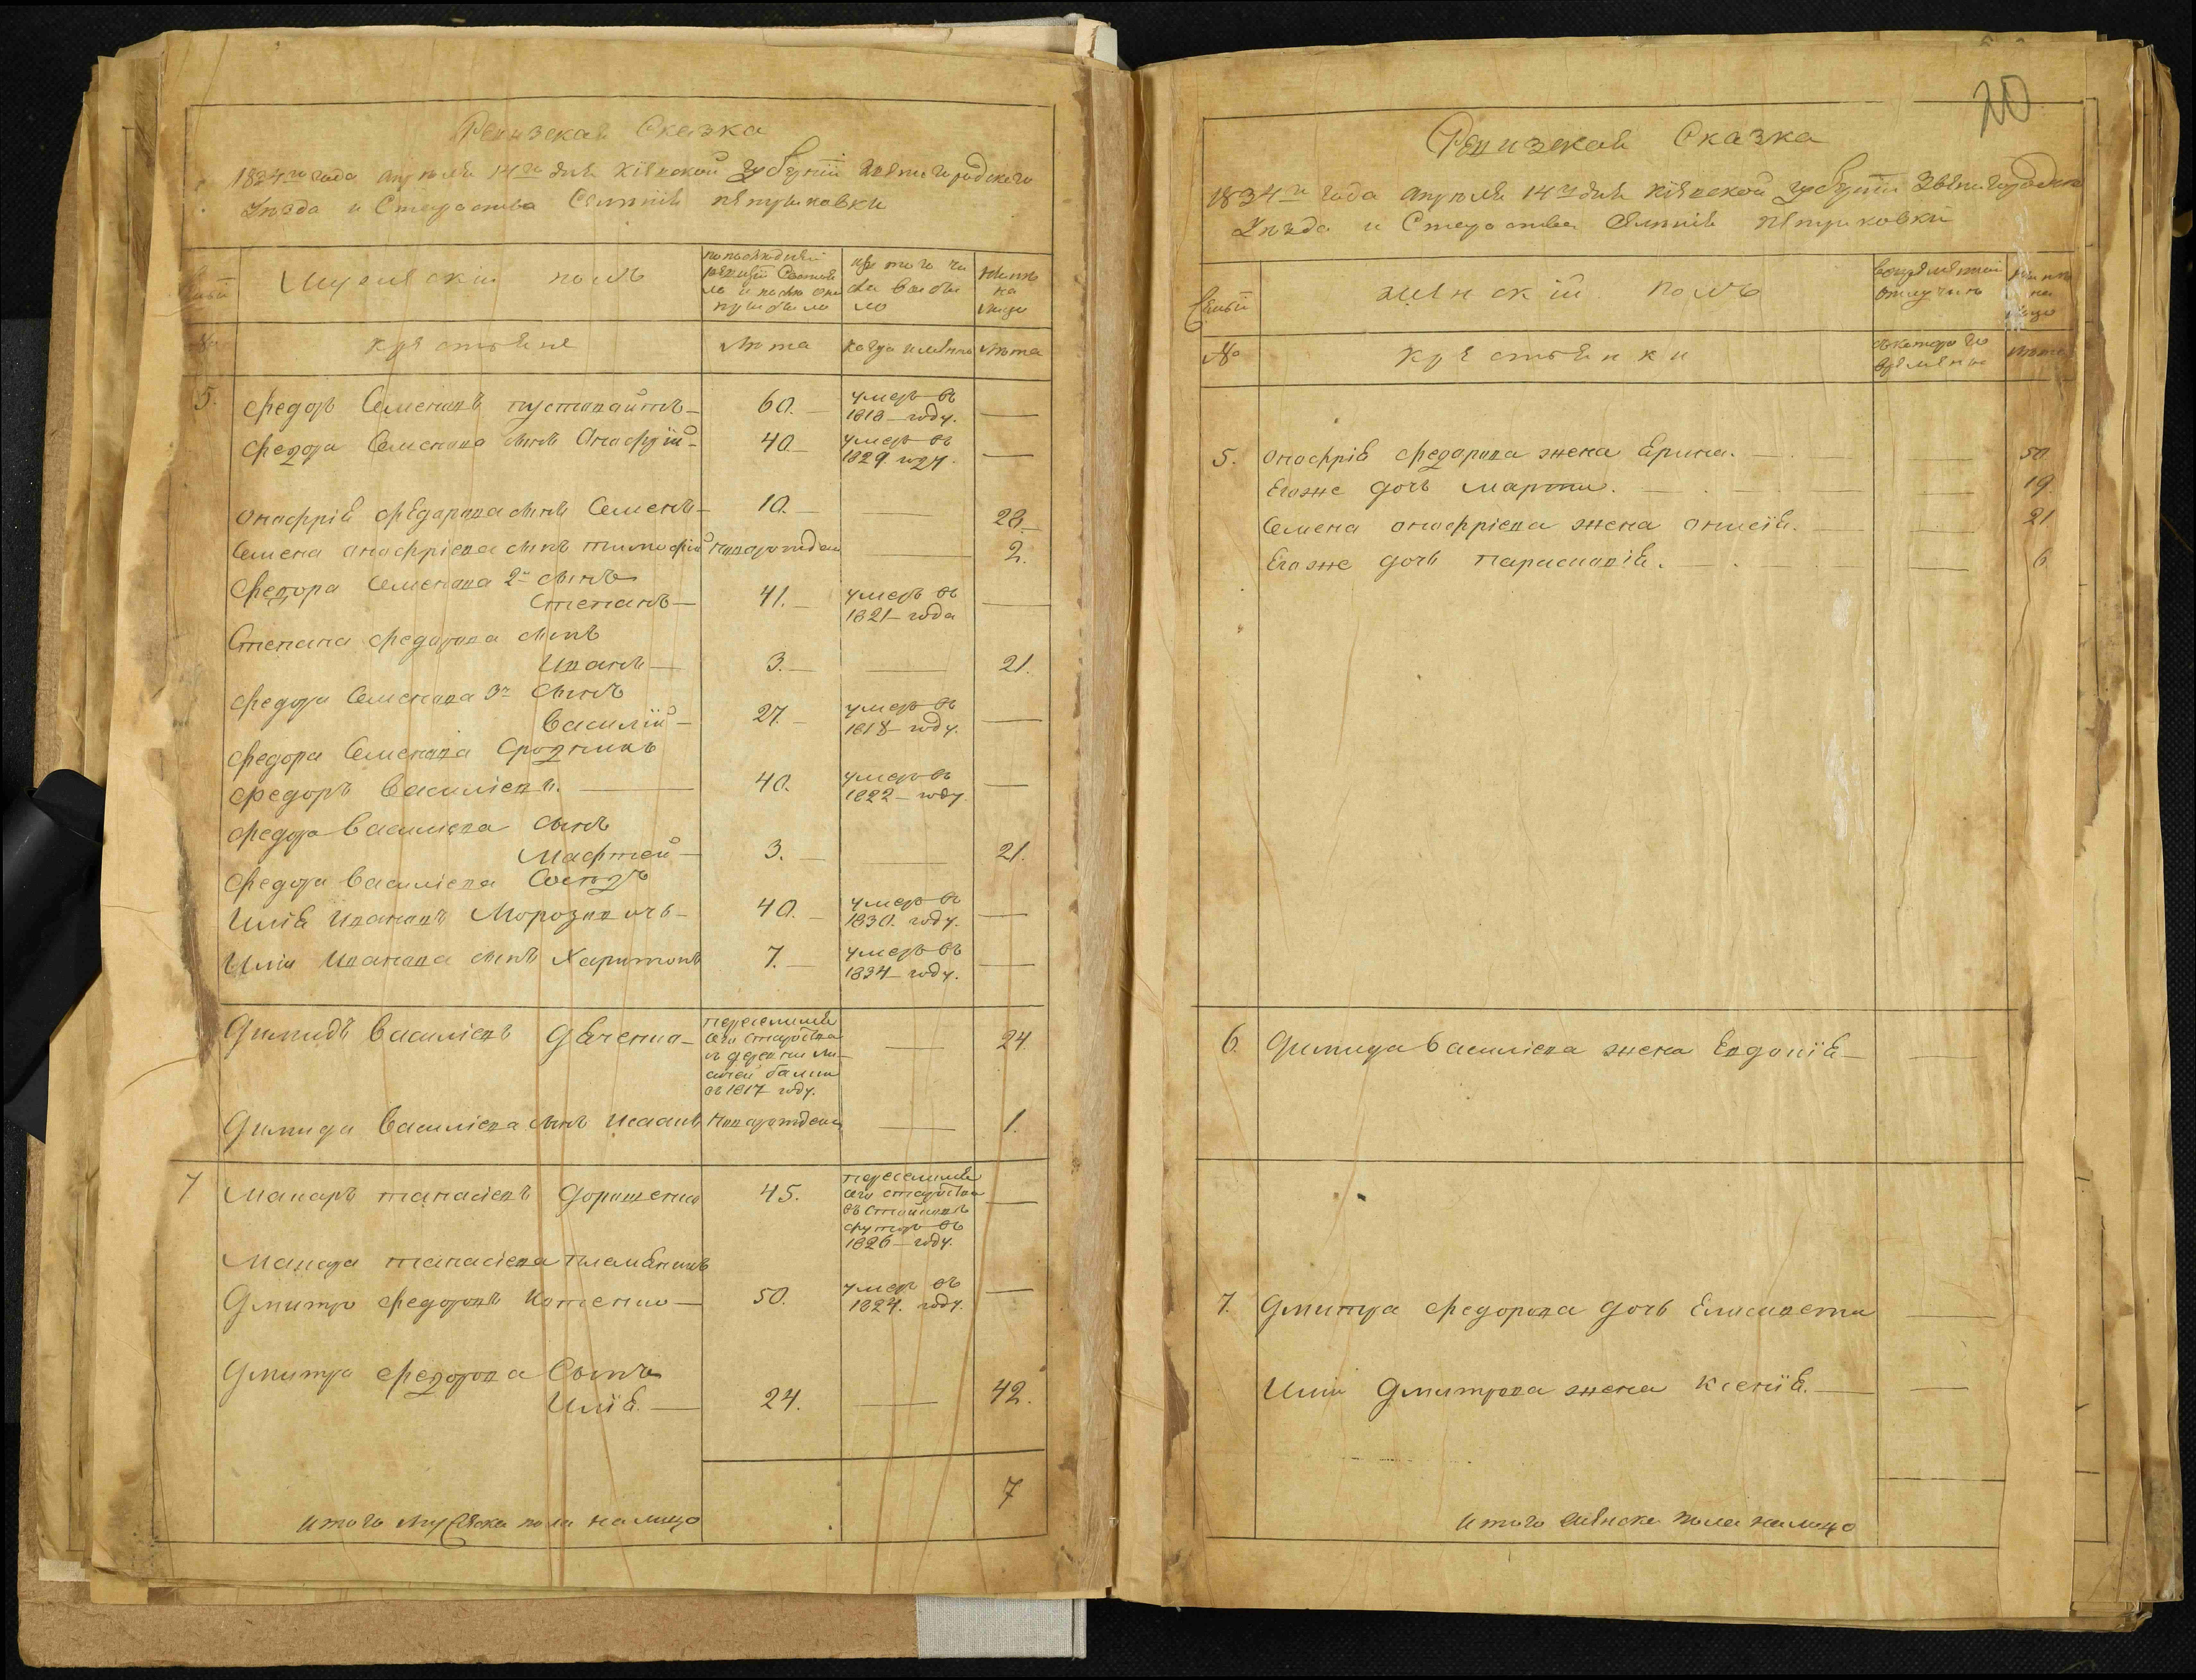 Ревизская Сказка
1834го года апреля 14го дня Кіевской губерніи Звенигородского
Уезда и Староства Селенія Петриковки
Мужеский полъ
На лицо
№
Крестьяне
Лѣта
когда именно
Лѣта
5. Федоръ Семеновъ пустовойтъ — 60. — умеръ въ 1818 году. —
Федора Семенова сынъ Онофрій — 40. — умеръ въ 1829 году. —
Онофрія Федорова сынъ Семенъ — 10. — — 28.
Семена Онофріева сынъ Тимофій новорожден — 2.
Федора Семенова 2й сынъ
Степанъ — 41. — умеръ въ 1821 года —
Степана Федорова сынъ
Иванъ — 3. — — 21.
Федора Семенова 3й сынъ
Василій — 27. — умеръ въ 1818 году. —
Федора Семенова Сродникъ
Федоръ Василіевъ. — 40. умеръ въ 1822 году. —
Федора Василіева сынъ
Мафтей — 3. — — 21.
Федора Василіева Сосѣдъ
Илія Ивановъ Морозовичъ — 40. — умеръ въ 1830. году. —
Иліи Иванова сынъ Харитонъ 7. — умеръ въ 1834 году. —
Димидъ Василіевъ Дяченко — переселился сего староства
въ 1817 году. — 24
Димида Василіева сынъ Исаакъ новорожден — 1.
7 Макаръ Танасіевъ Дорошенко 45. переселился сего староства
въ
футоръ въ
1826 году. —
Макара Танасіева племянникъ
Дмитро Федоровъ Котенко — 50. умеръ въ 1824. году. —
Дмитра Федорова Сынъ
Илія. — 24. — 42.
7
Итого мужеска пола на лицо
20
Ревизская Сказка
1834го года апреля 14го дня Кіевской губерніи Звенигородского
Уезда и Староства Селенія Петриковки
Семьи
женскій полъ
Во временной отлучкѣ
На лицо
№
Крестьянки
съ котораго времени
Лѣта
5. Онофрія Федорова жена Ерина. — — 50
Егоже дочь Марта. — — 19.
Семена Онофріева жена Онисія. — — 21
Егоже дочь Параскавія. — — 6
6. Димида Василіева жена Евдокія — —
7. Дмитра Федорова дочь Елисавета —
Иліи Дмитрова жена Ксенія. — —
Итого женска пола налицо